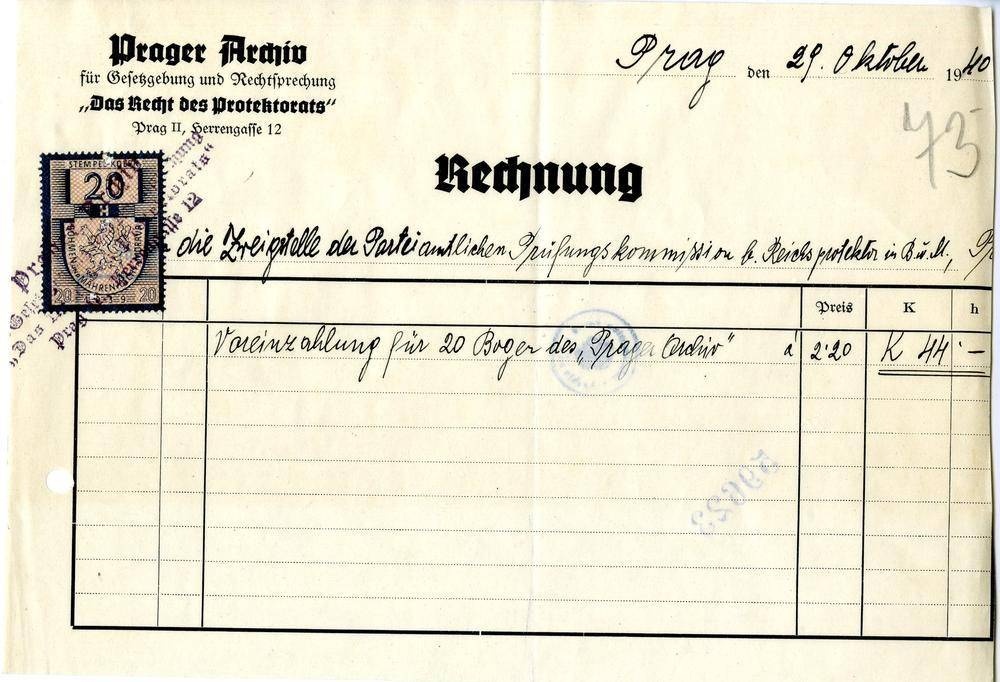 Prager Archiv
für Gesetzgebung und Rechtsprechung
„Das Recht des Protektorats“
Prag II, Herrengasse 12
Prag den 29. Oktober 1940
43
Rechnung
STEMPEL-KOLEK
20
20 20
die Zweigstelle der Parteiamtlichen Prüfungskommission b. Reichsprotektor in B. u. M.,
Preis K h
Voreinzahlung für 20 Bogen des „Prager Archiv“ à 2·20 K 44·—
59623